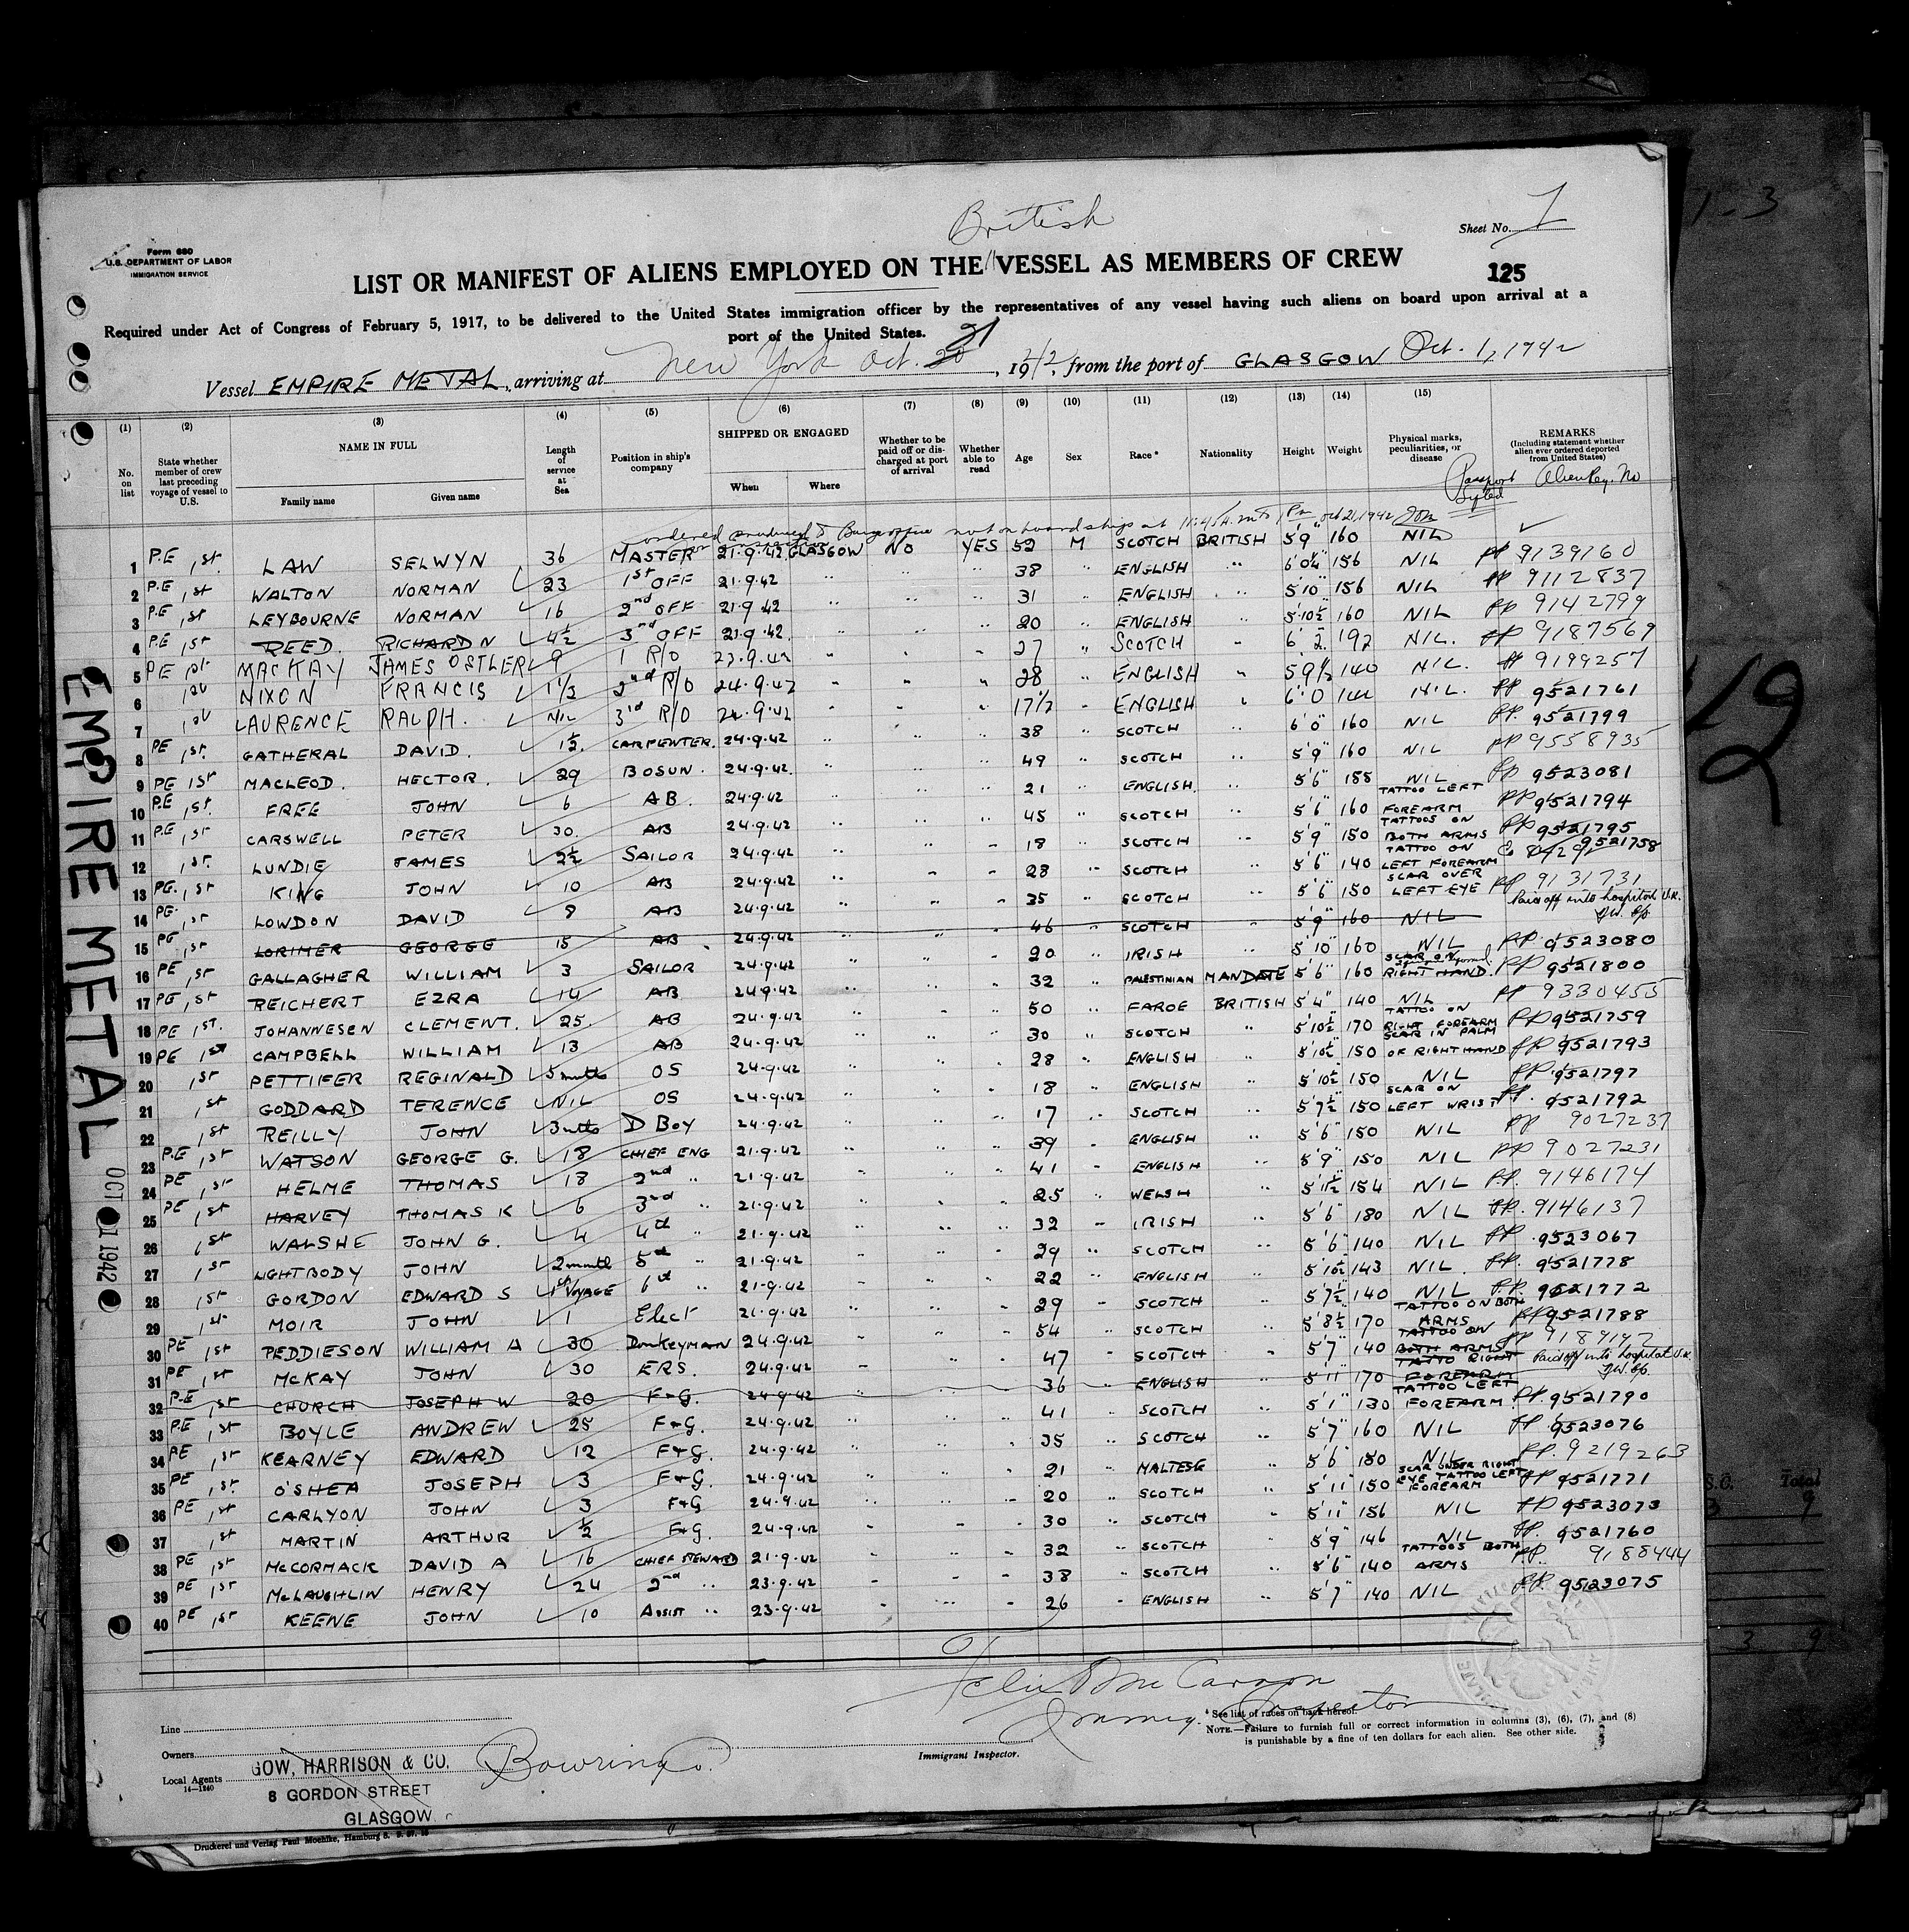 British
Sheet No. 1
Form 680
U.S. DEPARTMENT OF LABOR
IMMIGRATION SERVICE
LIST OR MANIFEST OF ALIENS EMPLOYED ON THE VESSEL AS MEMBERS OF CREW
125
Required under Act of Congress of February 5, 1917, to be delivered to the United States immigration officer by the representatives of any vessel having such aliens on board upon arrival at a
port of the United States.
Vessel EMPIRE METAL, arriving at New York Oct. 20 21, 1942, from the port of GLASGOW Oct. 1, 1942
(1) (2) (3) (4) (5) (6) (7) (8) (9) (10) (11) (12) (13) (14) (15)
No. on list
State whether member of crew last preceding voyage of vessel to U.S.
NAME IN FULL
Family name Given name
Length of service at Sea
Position in ship's company
SHIPPED OR ENGAGED
When Where
Whether to be paid off or discharged at port of arrival
Whether able to read
Age Sex Race* Nationality Height Weight
Physical marks, peculiarities, or disease
REMARKS
(Including statement whether alien ever ordered deported from United States)
Passport Alien Reg. No
1 P.E 1st. LAW SELWYN 36 MASTER 21·9·42 GLASGOW NO YES 52 M SCOTCH BRITISH 5'9" 160 NIL
2 P.E 1st WALTON NORMAN 23 1st OFF 21·9·42 " " " 38 " ENGLISH " 6'0¼" 156 NIL PP 9139160
3 P.E 1st LEYBOURNE NORMAN 16 2nd OFF 21·9·42 " " " 31 " ENGLISH " 5'10" 156 NIL PP 9112837
4 P.E 1st REED. RICHARD N 4½ 3rd OFF 21·9·42 " " " 20 " ENGLISH " 5'10½ 160 NIL PP 9142799
5 PE 1st MACKAY JAMES OSTLER 9 1 R/O 23.9.42 " " " 27 " SCOTCH " 6'2" 192 NIL. PP 9187569
6 1st NIXON FRANCIS 1⅓ 2nd R/O 24.9.42 " " " 28 " ENGLISH " 5 9½ 140 NIL. PP 9199257
7 1st LAURENCE RALPH. NIL 3rd R/O 24.9.42 " " " 17½ " ENGLISH " 6'0 144 NIL. PP 9521761
8 PE 1st. GATHERAL DAVID. 1½ CARPENTER. 24·9·42 " " " 38 " SCOTCH " 6'0" 160 NIL PP. 9521799
9 PE 1st MACLEOD. HECTOR. 29 BOSUN. 24·9·42 " " " 49 " SCOTCH " 5'9" 160 NIL PP 9558935
10 P.E 1st. FREE JOHN 6 AB. 24·9·42 " " " 21 " ENGLISH. " 5'6" 155 NIL PP 9523081
11 P.E 1st CARSWELL PETER 30. AB 24·9·42 " " " 45 " SCOTCH " 5'6" 160 TATTOO LEFT FOREARM PP 9521794
12 1st. LUNDIE JAMES 2½ SAILOR 24·9·42 " " " 18 " SCOTCH " 5'9" 150 TATTOOS ON BOTH ARMS PP 9521795
13 PE. 1st KING JOHN 10 AB 24·9·42 " " " 28 " SCOTCH " 5'6" 140 TATTOO ON LEFT FOREARM 9521758
14 PE. 1st LOWDON DAVID 8 AB 24·9·42 " " " 35 " SCOTCH " 5'6" 150 SCAR OVER LEFT EYE PP 9131731
15 PE 1st LORIMER GEORGE 15 AB 24·9·42 " " " 46 " SCOTCH " 5'9" 160 NIL Paid off into hospital U.K.
16 PE 1st GALLAGHER WILLIAM 3 SAILOR 24·9·42 " " " 20 " IRISH " 5'10" 160 NIL PP. 9523080
17 PE 1st REICHERT EZRA 14 AB 24·9·42 " " " 32 " PALESTINIAN MANDATE 5'6" 160 SCAR ON RIGHT HAND. PP 9521800
18 PE 1st. JOHANNESEN CLEMENT. 25 AB 24·9·42 " " " 50 " FAROE BRITISH 5'4" 140 NIL PP 9330455
19 PE 1st CAMPBELL WILLIAM 13 AB 24·9·42 " " " 30 " SCOTCH " 5'10½ 170 TATTOO ON RIGHT FOREARM PP 9521759
20 1st PETTIFER REGINALD 5 mnths OS 24·9·42 " " " 28 " ENGLISH " 5'10½ 150 SCAR IN PALM OF RIGHT HAND PP 9521793
21 1st GODDARD TERENCE NIL OS 24·9·42 " " " 18 " ENGLISH " 5'10½ 150 NIL PP 9521797
22 1st REILLY JOHN 3 mths D BOY 24·9·42 " " " 17 " SCOTCH " 5'7½ 150 SCAR ON LEFT WRIST PP. 9521792
23 P.E 1st WATSON GEORGE G. 18 CHIEF ENG 21·9·42 " " " 39 " ENGLISH " 5'6" 150 NIL PP 9027237
24 PE 1st HELME THOMAS 18 2nd " 21·9·42 " " " 41 " ENGLISH " 5'9" 150 NIL PP 9027231
25 PE 1st HARVEY THOMAS K 6 3rd " 21·9·42 " " " 25 " WELSH " 5'11½ 154 NIL PP. 9146174
26 1st WALSHE JOHN G. 4 4th " 21·9·42 " " " 32 " IRISH " 5'6" 180 NIL PP. 9146137
27 1st LIGHTBODY JOHN 2 mnth 5th " 21·9·42 " " " 29 " SCOTCH " 5'6" 140 NIL PP. 9523067
28 1st GORDON EDWARD S 1st VOYAGE 6th " 21·9·42 " " " 22 " ENGLISH " 5'10½ 143 NIL. PP. 9521778
29 1st MOIR JOHN 1 Elect 21·9·42 " " " 29 " SCOTCH " 5'7½ 140 NIL P.P. 9521772
30 PE 1st PEDDIESON WILLIAM A 30 Donkeyman 24·9·42 " " " 54 " SCOTCH " 5'8½ 170 TATTOO ON BOTH ARMS PP 9521788
31 PE 1st McKAY JOHN 30 ERS. 24·9·42 " " " 47 " SCOTCH " 5'7" 140 TATTOO ON BOTH ARMS
32 P.E 1st CHURCH JOSEPH W 20 F+G. 24·9·42 36 " ENGLISH " 5'11" 170 TATTO RIGHT FOREARM Paid off into hospital U.K.
33 P.E 1st BOYLE ANDREW 25 F+G. 24·9·42 " " " 41 " SCOTCH " 5'1" 130 TATTOO LEFT FOREARM PP. 9521790
34 PE 1st KEARNEY EDWARD 12 F+G. 24·9·42 " " " 35 " SCOTCH " 5'7" 160 NIL PP 9523076
35 PE 1st. O'SHEA JOSEPH 3 F+G. 24·9·42 " " " 21 " MALTESE " 5'6" 150 NIL PP. 9219263
36 PE 1st CARLYON JOHN 3 F+G 24·9·42 " " " 20 " SCOTCH " 5'11" 150 SCAR UNDER RIGHT EYE TATTOO LEFT FOREARM PP 9521771
37 1st MARTIN ARTHUR ½ F+G. 24·9·42 " " " 30 " SCOTCH " 5'11" 156 NIL PP 9523073
38 PE 1st McCORMACK DAVID A 16 CHIEF STEWARD 21·9·42 " " " 32 " SCOTCH " 5'9" 146 NIL PP. 9521760
39 PE 1st McLAUGHLIN HENRY 24 2nd " 23·9·42 " " " 38 " SCOTCH " 5'6" 140 TATTOOS BOTH ARMS PP 9188444
40 PE 1st KEENE JOHN 10 ASSIST " 23·9·42 " " " 26 " ENGLISH " 5'7" 140 NIL PP. 9523075
EMPIRE METAL
OCT 21 1942
Inspector
Line
Owners
Local Agents
14—1240
GOW, HARRISON & CO.
8 GORDON STREET
GLASGOW
Bowring Co.
Immigrant Inspector.
* See list of races on back hereof.
NOTE.—Failure to furnish full or correct information in columns (3), (6), (7), and (8)
is punishable by a fine of ten dollars for each alien. See other side.
Druckerei und Verlag Paul Moehlke, Hamburg
Total
9
3 9